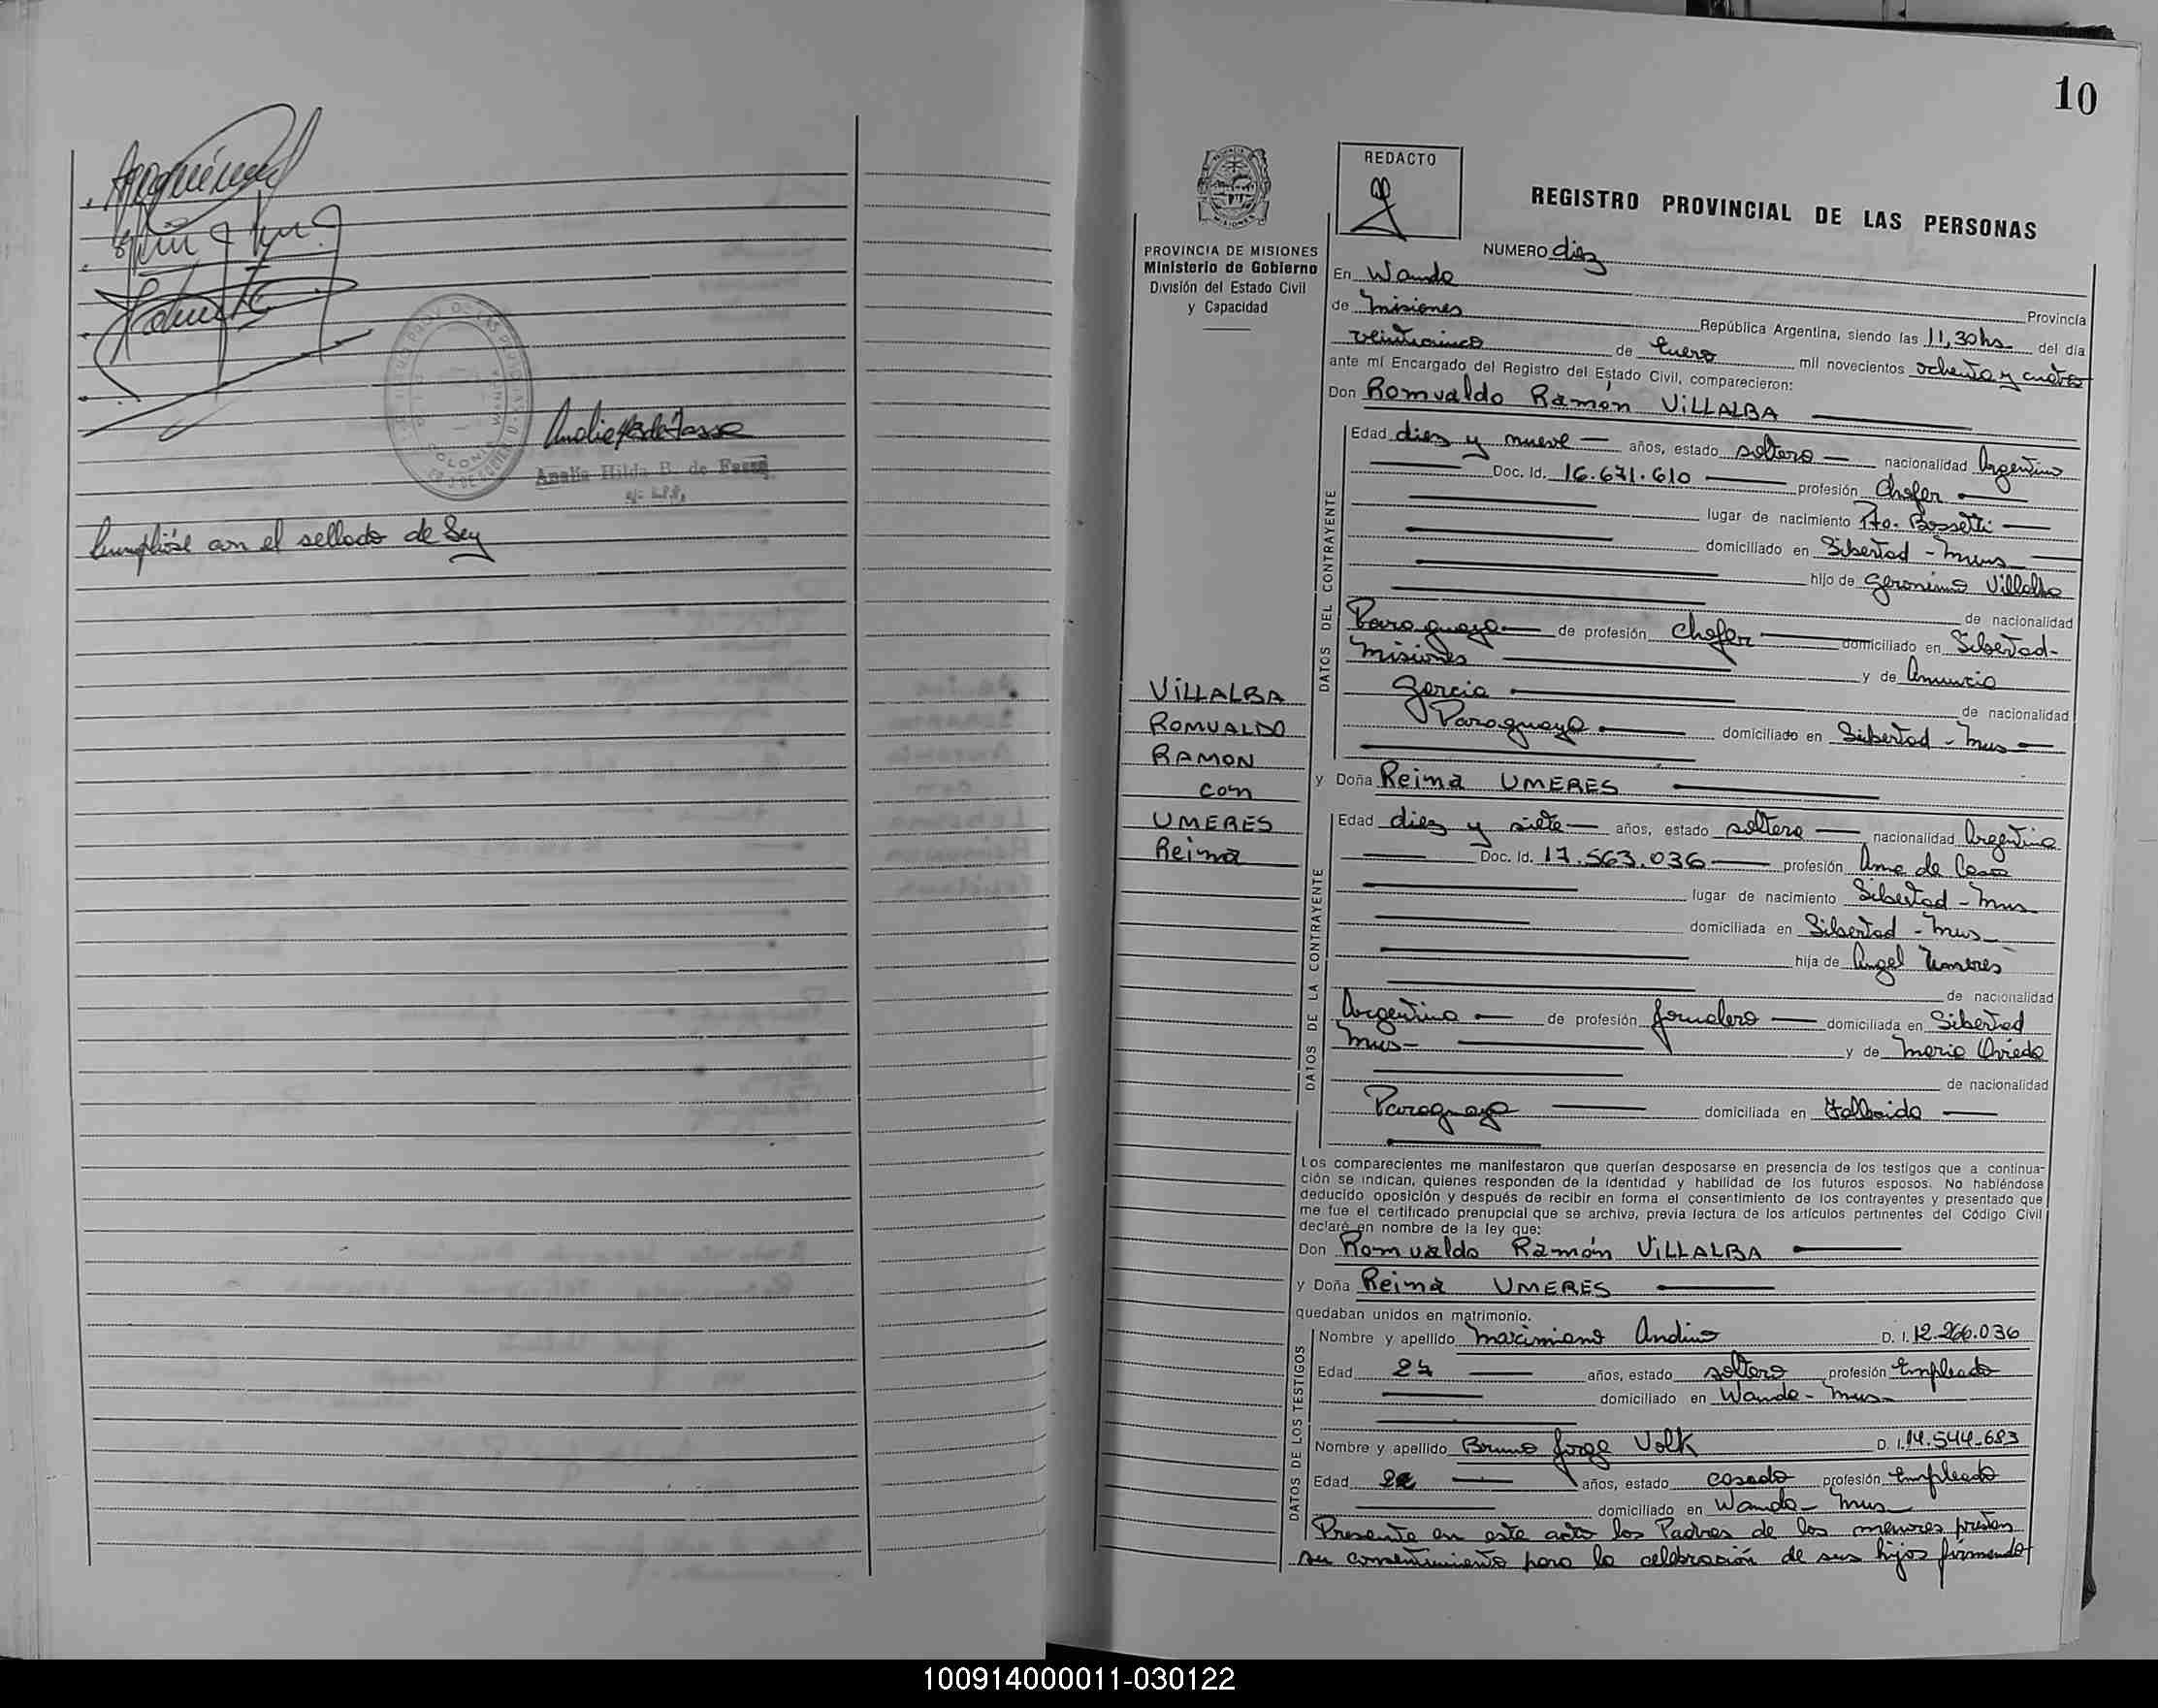 Cumplióse con el sellado de Ley
Analía Hilda B. de Fasse
10
REDACTO
REGISTRO PROVINCIAL DE LAS PERSONAS
PROVINCIA DE MISIONES
Ministerio de Gobierno
División del Estado Civil
y Capacidad
NUMERO diez
En Wanda
Provincia
de Misiones República Argentina, siendo las 11,30 hs del día
veinticinco de Enero mil novecientos ochenta y cuatro
ante mí Encargado del Registro del Estado Civil, comparecieron:
Don Romualdo Ramón VILLALBA
DATOS DEL CONTRAYENTE
Edad diez y nueve años, estado soltero nacionalidad Argentino
Doc. Id. 16.671.610 profesión Chofer
lugar de nacimiento Pto. Bossetti
domiciliado en Libertad - Mnes
hijo de Geronimo Villalba
de nacionalidad
Paraguaya de profesión Chofer domiciliado en Libertad-
Misiones y de Anuncia
Garcia de nacionalidad
Paraguaya domiciliado en Libertad - Mnes
VILLALBA
ROMUALDO
RAMON
con
UMERES
Reina
y Doña Reina UMERES
DATOS DE LA CONTRAYENTE
Edad diez y siete años, estado soltera nacionalidad Argentina
Doc. Id. 17.563.036 profesión Ama de Casa
lugar de nacimiento Libertad - Mnes
domiciliada en Libertad - Mnes
hija de Angel Umeres
de nacionalidad
Argentina de profesión Jornalero domiciliada en Libertad
Mnes- y de Maria Oviedo
de nacionalidad
Paraguaya domiciliada en Fallecida
Los comparecientes me manifestaron que querían desposarse en presencia de los testigos que a continua-
ción se indican, quienes responden de la identidad y habilidad de los futuros esposos. No habiéndose
deducido oposición y después de recibir en forma el consentimiento de los contrayentes y presentado que
me fue el certificado prenupcial que se archiva, previa lectura de los artículos pertinentes del Código Civil
declaré en nombre de la ley que:
Don Romualdo Ramón VILLALBA
y Doña Reina UMERES
quedaban unidos en matrimonio.
DATOS DE LOS TESTIGOS
Nombre y apellido Marcimiano Andino D. I. 12.266.036
Edad años, estado soltero profesión Empleado
domiciliado en Wanda - Mnes
Nombre y apellido Bruno Jorge Volk D. I. 14.544.683
Edad años, estado casado profesión Empleado
domiciliado en Wanda - Mnes
Presente en este acto los Padres de los menores prestan
su consentimiento para la celebración de sus hijos firmando
100914000011-030122